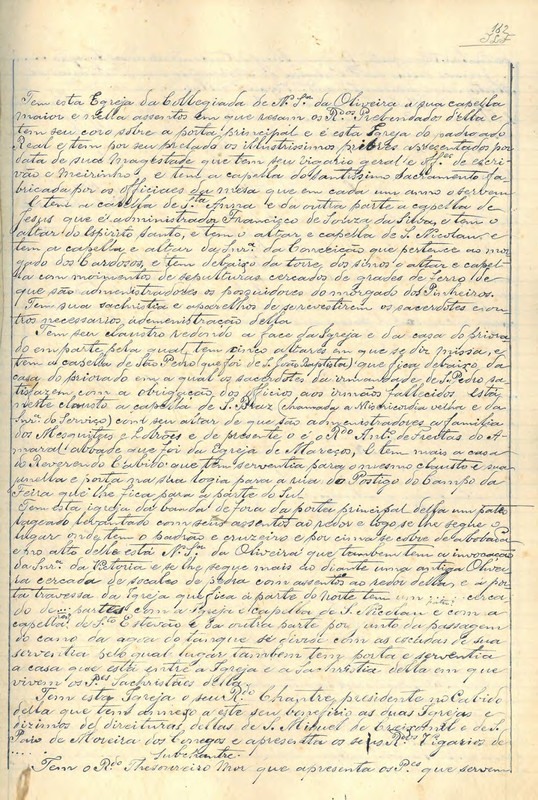 182
Tem esta Egreja da Collegiada de N. Sra da Oliveira a sua capella
maior e nella assentos em que resam os Rdos Prebendados della e
tem seu coro sobre a porta principal e é esta Egreja do padroado
Real e tem por seu prelado os illustrissimos priores apresentados por
data de sua magestade que tem seu vigario geral e offes de escri-
vão e meirinho, e tem a capella do Santissimo Sacramento fa-
bricada por os officiaes da mesa que em cada um anno o servem
E tem a capella de Sta Anna e da outra parte a capella de
Jesus que é administrador Francisco de Souza da Silva, e tem o
altar do Espirito Santo, e tem o altar e capella de S. Nicolau, e
tem a capella e altar da Snra da Conceição que pertence ao mor-
gado dos Cardosos, e tem debaixo da torre dos sinos o altar e capel-
la com moimentos de sepulturas cercados de grades de ferro de
que são administradores os possuidores do morgado dos Pinheiros.
Tem sua sachristia e aparelhos de se revestirem os sacerdotes e ou-
tros necessarios á administração della
Tem seu claustro redondo a face da Igreja e da casa do priora-
do em parte pela qual tem cinco altares em que se diz missa, e
tem a capella de São Pedro (que foi de S. João Baptista) que fica debaixo da
casa do priorado em a qual os sacerdotes da irmandade de S. Pedro sa-
tisfazem com a obrigação dos officios aos irmãos fallecidos. Está
neste claustro a capella de S. Braz (chamada a Misericordia velha e da
Snra do Serviço) com seu altar de que são administradores a familia
dos Mesquitas e Lobões e de presente o é o Rdo Anto de Freitas do A-
maral abbade que foi da Egreja de Marecos, E tem mais a casa
do Reverendo Cabido que tem serventia para o mesmo claustro e sua
janella e porta na sua logia para a rua do Postigo do Campo da
Feira que lhe fica para a parte do Sul.
Tem esta igreja da banda de fora da porta principal della um pateo
lageado levantado com seus assentos ao redor e logo se lhe segue o
lugar onde tem o padrão e cruzeiro e por cima se cobre de abobada
e no alto delle está N. Sra da Oliveira que tambem tem a invocação
da Snra da Victoria e se lhe segue mais ao diante uma antiga Olivei-
ra cercada de socalco de pedra com assentos ao redor della, e á por-
ta travessa da Igreja que fica á parte do Norte tem um ... cerca-
do de ... partes com a Igreja e capella de S. Nicolau e com a
capella de Sto Estevão e da outra parte por junto da passagem
do cano da agoa do tanque se divide com as escadas de sua
serventia pelo qual lugar tambem tem porta e serventia
a casa que está entre a Igreja e a Sachristia della em que
vivem os Pes Sachristães della
Tem esta Igreja o seu Rdo Chantre, presidente no Cabido
della que tem annexo a este seu beneficio as duas Igrejas e
dizimos de direituras dellas de S. Miguel de Creixomil e de S.
Paio de Moreira dos Conegos e apresenta os seus Rdos Vigarios de
.... Subchantre
Tem o Rdo Thesoureiro Mor que apresenta os Pes que servem